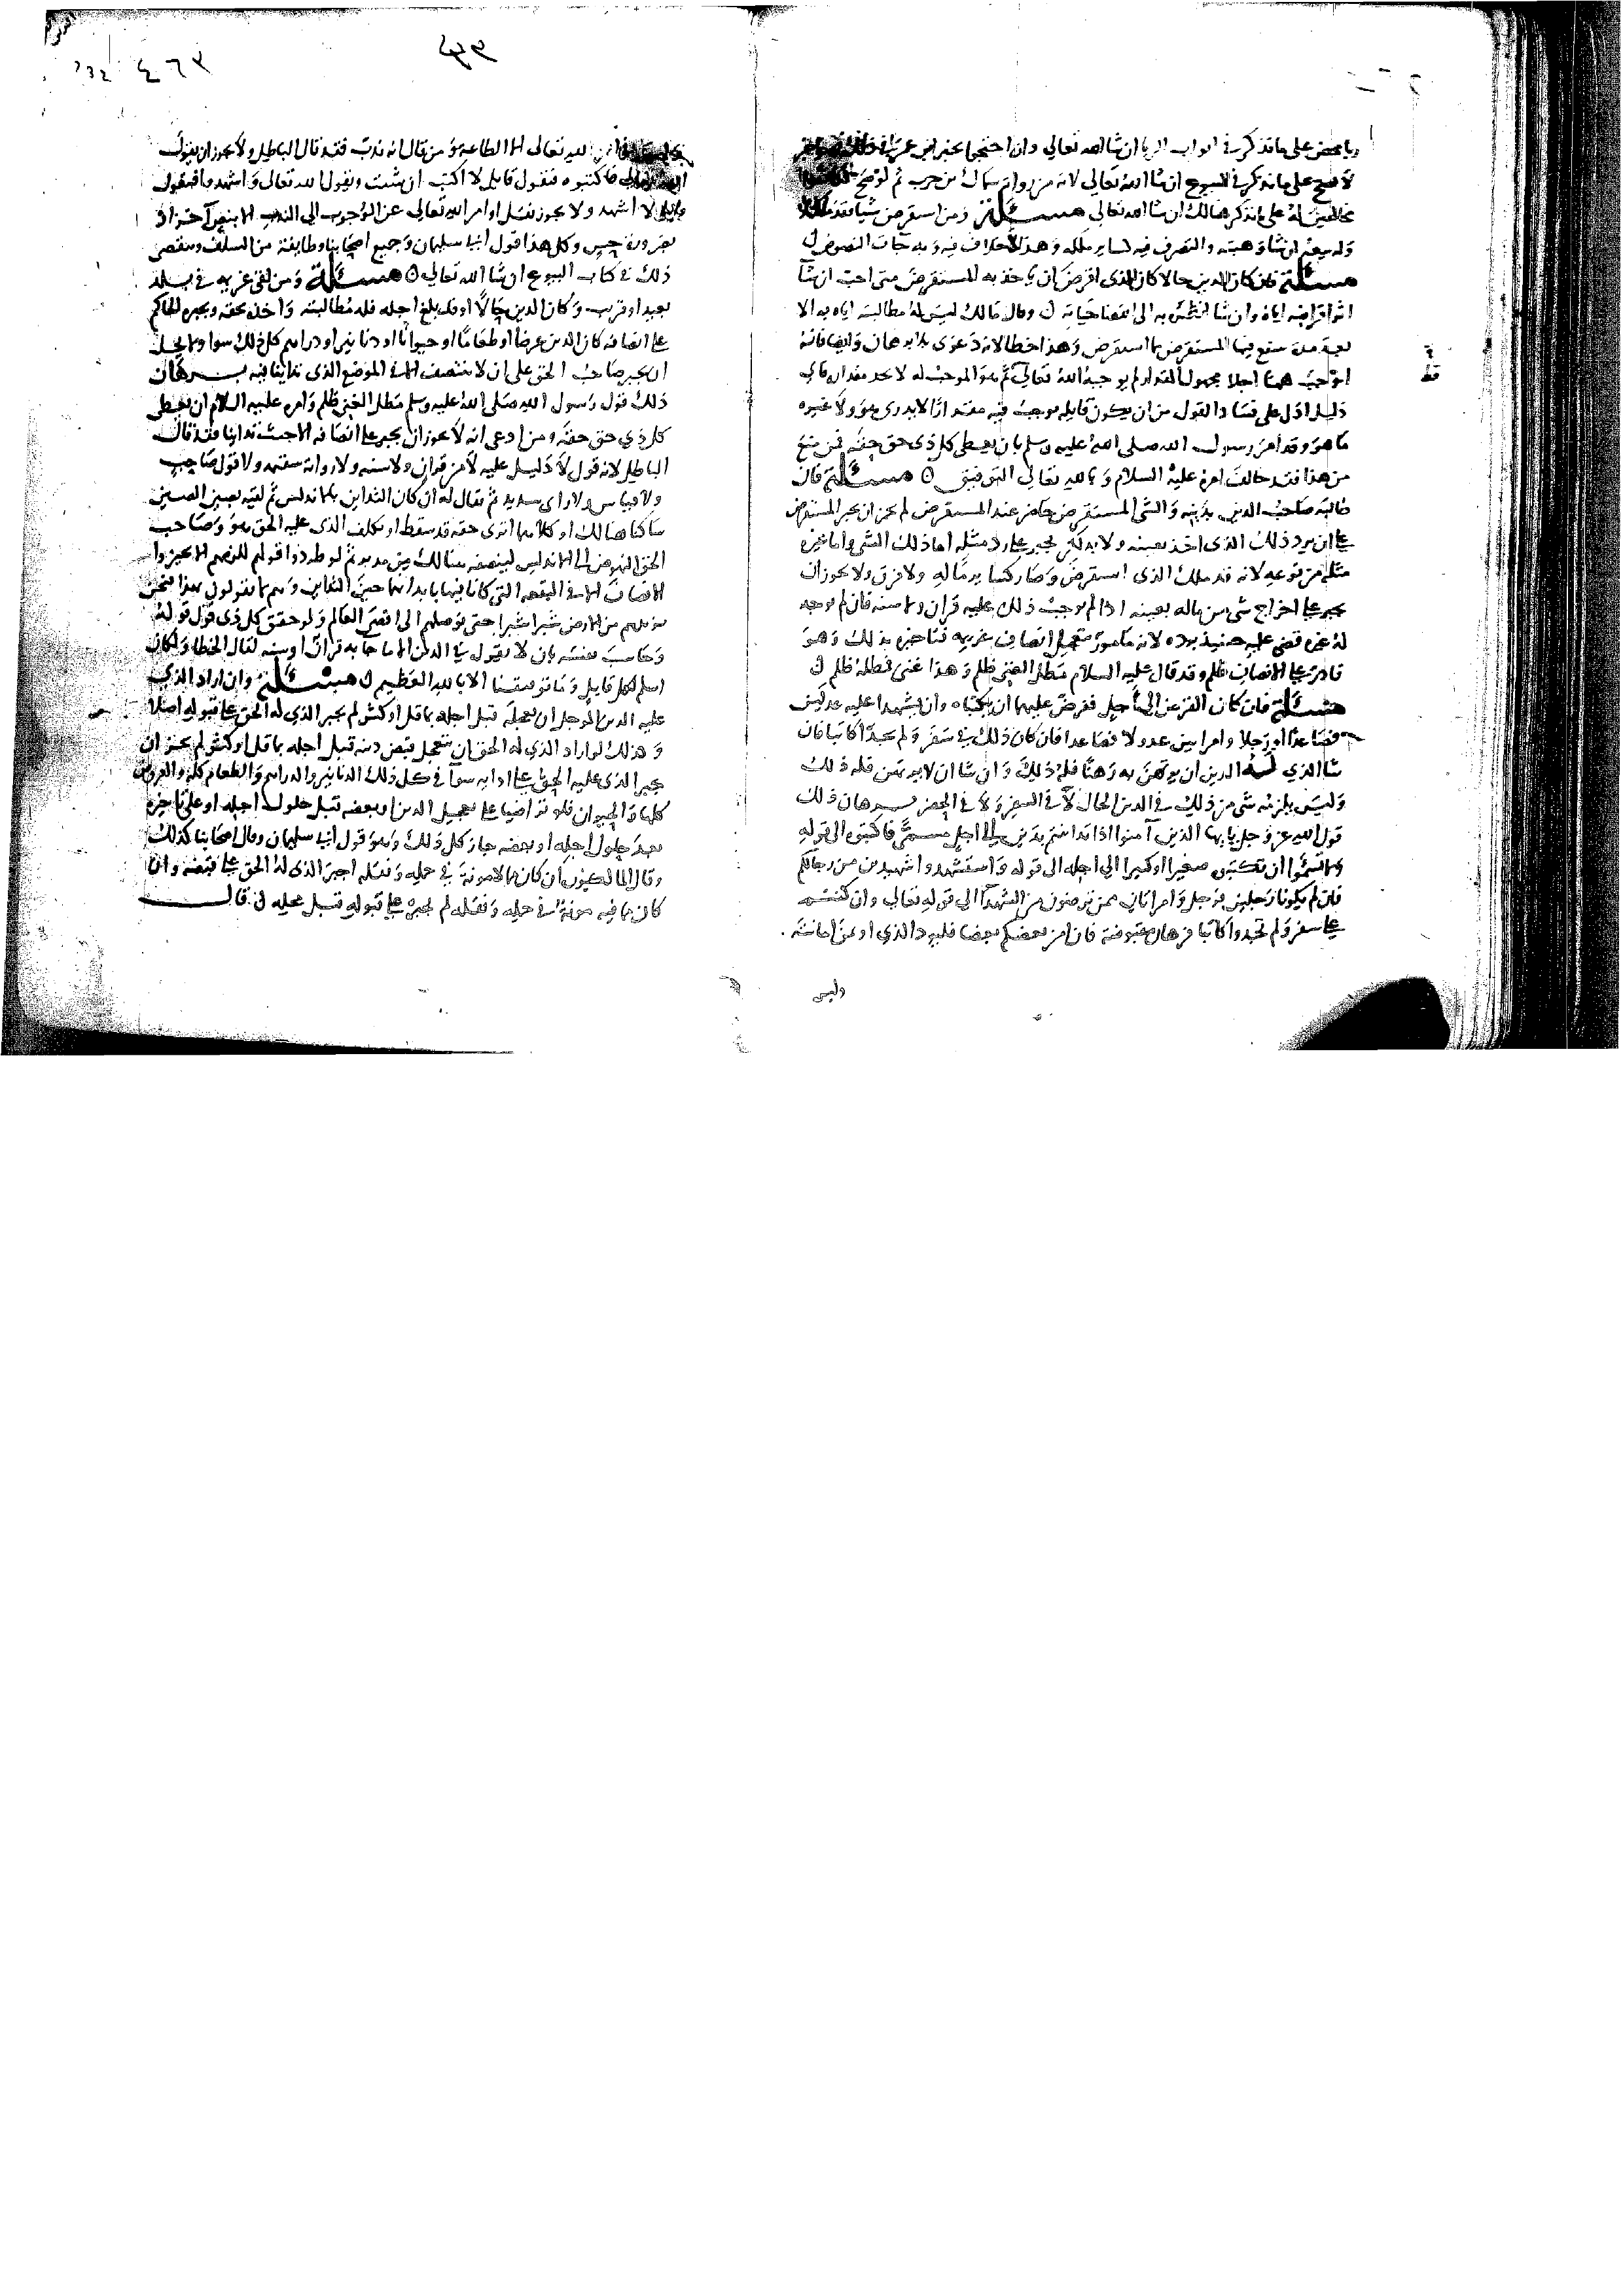 وبا محض على ما نذكر في ابواب الربا ان شا الله تعالى وان احتجوا بخبر ابن عمر
لا يصح على ما نذكر في البيوع ان شا الله تعالى لانه من رواية سماك بن حرب ثم لو صح
مخالفين له على ما نذكر هنالك ان شا الله تعالى مسئلة ومن استقرض شيا فقد ملكه
وله بيعه ان شا وهبته والتصرف فيه كساير ملكه وهذا لا خلاف فيه وبه جات النصوص
مسئلة فان كان الدين حالا كان للذي اقرض ان ياخذ به المستقرض متى احب ان شا
اثر اقراضه اياه وان شا انظره به الى انقضا حياته وقال مالك ليس له مطالبته اياه به الا
بعد مدة ينتفع فيها المستقرض بما استقرض وهذا خطا لانه دعوى بلا برهان وايضا فانه
اوجب ههنا اجلا مجهول المقدار لم يوجبه الله تعالى ثم هو الموجب له لا يحد مقداره فاي
دليل ادل على فساد القول من ان يكون قايله يوجب فيه مقدارا لا يدري هو ولا غيره
ما هو وقد امر رسول الله صلى الله عليه وسلم بان يعطى كل ذي حق حقه فمن منع
من هذا فقد خالف امره عليه السلام وبالله تعالى التوفيق مسئلة فان
طالبه صاحب الدين بدينه والشي المستقرض حاضر عند المستقرض لم يجز ان يجبر المستقرض
على ان يرد ذلك الذي اخذ بعينه ولا بد لكن يجبر على رد مثله اما ذلك الشي واما غيره
مثله من نوعه لانه قد ملك الذي استقرض وصار كساير ماله ولا فرق ولا يجوز ان
يجبر على اخراج شي من ماله بعينه اذا لم يوجب ذلك عليه قران ولا سنة فان لم يوجد
له غيره قضي عليه حينئذ برده لانه مامور بتعجيل انصاف غريمه فتاخيره بذلك وهو
قادر على الانصاف ظلم وقد قال عليه السلام مطل الغني ظلم وهذا غني فمطله ظلم
مسئلة فان كان القرض الى اجل ففرض عليهما ان يكتباه وان يشهدا عليه عدلين
فصاعدا او رجلا وامراتين عدولا فصاعدا فان كان ذلك في سفر ولم يجدا كاتبا فان
شا الذي له الدين ان يرتهن به رهنا فله ذلك وان شا ان لا يرتهن فله ذلك
وليس يلزمه شي من ذلك في الدين الحال لا في السفر ولا في الحضر برهان ذلك
قول الله عز وجل يا يها الذين آمنوا اذا تداينتم بدين الى اجل مسمى فاكتبوه الى قوله
ولا تسئموا ان تكتبوه صغيرا او كبيرا الى اجله الى قوله واستشهدوا شهيدين من رجالكم
فان لم يكونا رجلين فرجل وامراتان ممن ترضون من الشهدآ الى قوله تعالى وان كنتم
على سفر ولم تجدوا كاتبا فرهان مقبوضة فان امن بعضكم بعضا فليود الذي اوتمن امانته
وليس
٤٦٣
لله تعالى الا الطاعة ومن قال انه ندب فقد قال الباطل ولا يجوز ان يقول
الله تعالى فاكتبوه فيقول قايل لا اكتب ان شئت ويقول الله تعالى واشهدوا فيقول
قايل لا اشهد ولا يجوز نقل اوامر الله تعالى عن الوجوب الى الندب الا بنص آخر او
بضرورة حس وكل هذا قول ابي سليمان وجميع اصحابنا وطايفة من السلف ويتقصى
ذلك في كتاب البيوع ان شا الله تعالى مسئلة ومن لقي غريمه في بلد
بعيد او قريب وكان الدين حالا او قد بلغ اجله فله مطالبته واخذه بحقه ويجبره الحاكم
على انصافه كان الدين عرضا او طعاما او حيوانا او دنانير او دراهم كل ذلك سوا ولا يحل
ان يجبر صاحب الحق على ان لا ينتصف الا في الموضع الذي تداينا فيه برهان
ذلك قول رسول الله صلى الله عليه وسلم مطل الغني ظلم وامره عليه السلام ان يعطى
كل ذي حق حقه ومن ادعى انه لا يجوز ان يجبر على انصافه الا حيث تداينا فقد قال
الباطل لانه قول لا دليل عليه لا من قران ولا سنة ولا رواية سقيمة ولا قول صاحب
ولا قياس ولا راي سديد ثم يقال له ان كان التداين بالاندلس ثم لقيه بصين الصين
ساكنا هنالك او كلاهما اترى حقه قد سقط او يكلف الذي عليه الحق هو وصاحب
الحق النهوض الى الاندلس لينصفه هنالك من مديونه ثم لو طردوا قولهم للزمهم الا يجيزوا
الانصاف الا في البقعة التي كانا فيها بابدانهما حين التداين وهم لا يقولون بهذا
من الارض شبرا شبرا حتى نوصلهم الى اقصى العالم ولو حقق كل ذي قول قوله
وحاسب نفسه بان لا يقول في الدين الا ما جا به قران او سنة لقل الخطا ولكان
اسلم لكل قايل وما توفيقنا الا بالله العظيم مسئلة وان اراد الذي
عليه الدين الموجل ان يعجله قبل اجله بما قل او كثر لم يجبر الذي له الحق على قبوله اصلا
وكذلك لو اراد الذي له الحق ان يتعجل قبض دينه قبل اجله بما قل او كثر لم يجز ان
يجبر الذي عليه الحق على ادايه سوا في كل ذلك الدنانير والدراهم والطعام كله والعروض
كلها والحيوان فلو تراضيا على تعجيل الدين او بعضه قبل حلول اجله او على تاخيره
بعد حلول اجله او بعضه جاز كل ذلك وهو قول ابي سليمان وقال اصحابنا كذلك
وقال المالكيون ان كان مما لا مونة في حمله ونقله اجبر الذي له الحق على قبضه وان
كان مما فيه مونة في حمله ونقله لم يجبر على قبوله قبل محله قال